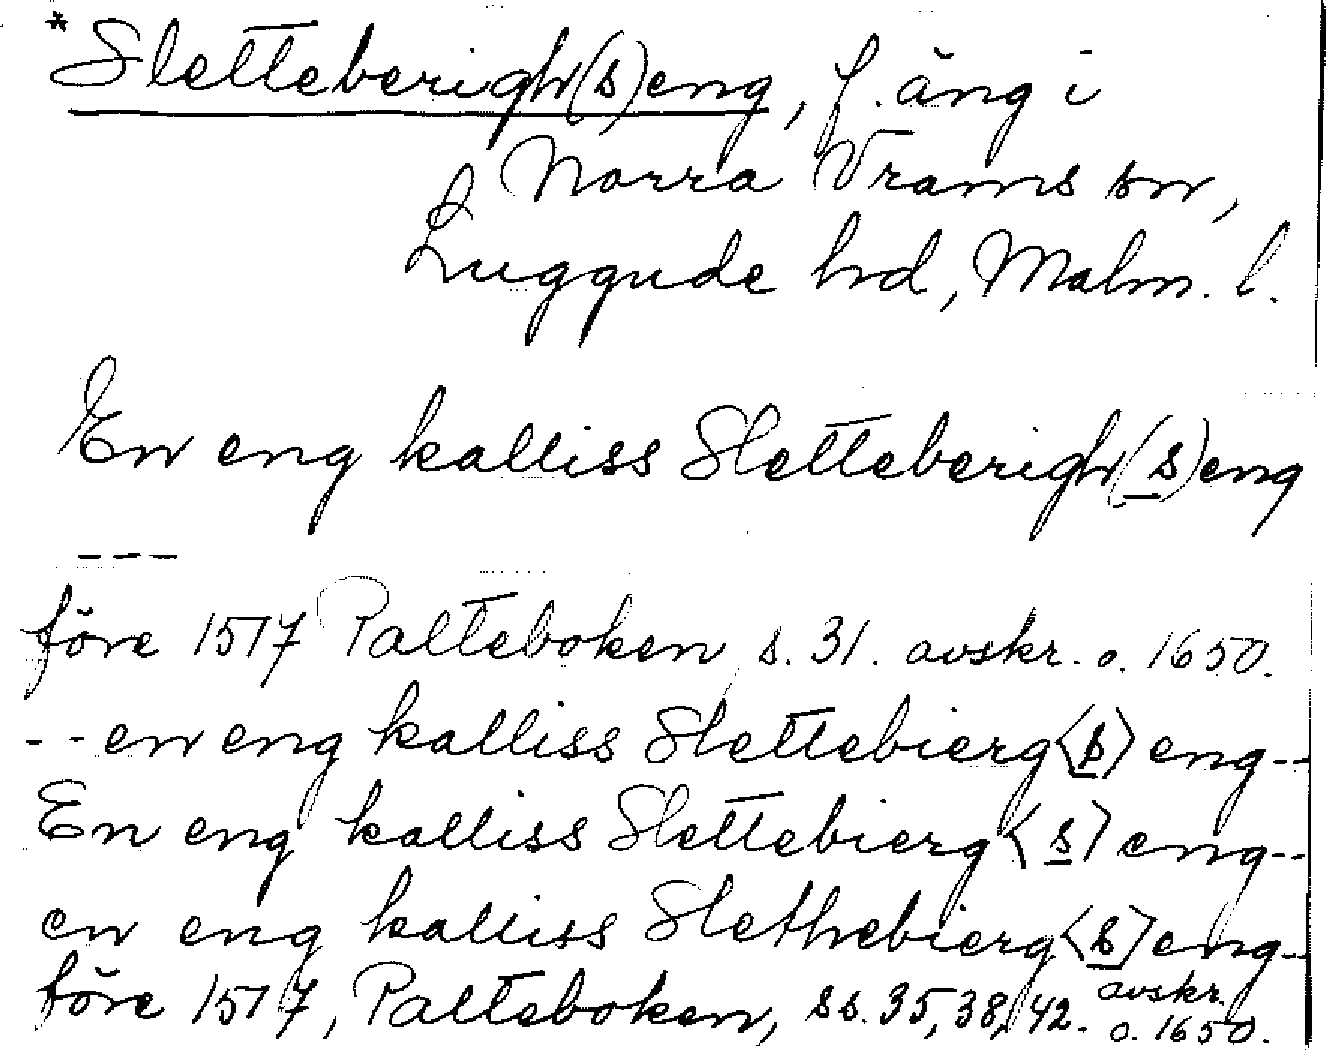 *Sletteberigh(s)eng, f. äng i
Norra Vrams sn,
Luggude hd, Malm. l.
En eng kalliss Sletteberigh(s)eng
---
före 1517 Palteboken s. 31. avskr. o. 1650.
-- en eng kalliss Slettebierg<s>eng--
En eng kalliss Slettebierg<s>eng--
en eng kalliss Slethebierg<s>eng--
före 1517, Palteboken, ss. 35, 38, 42. avskr. o. 1650.